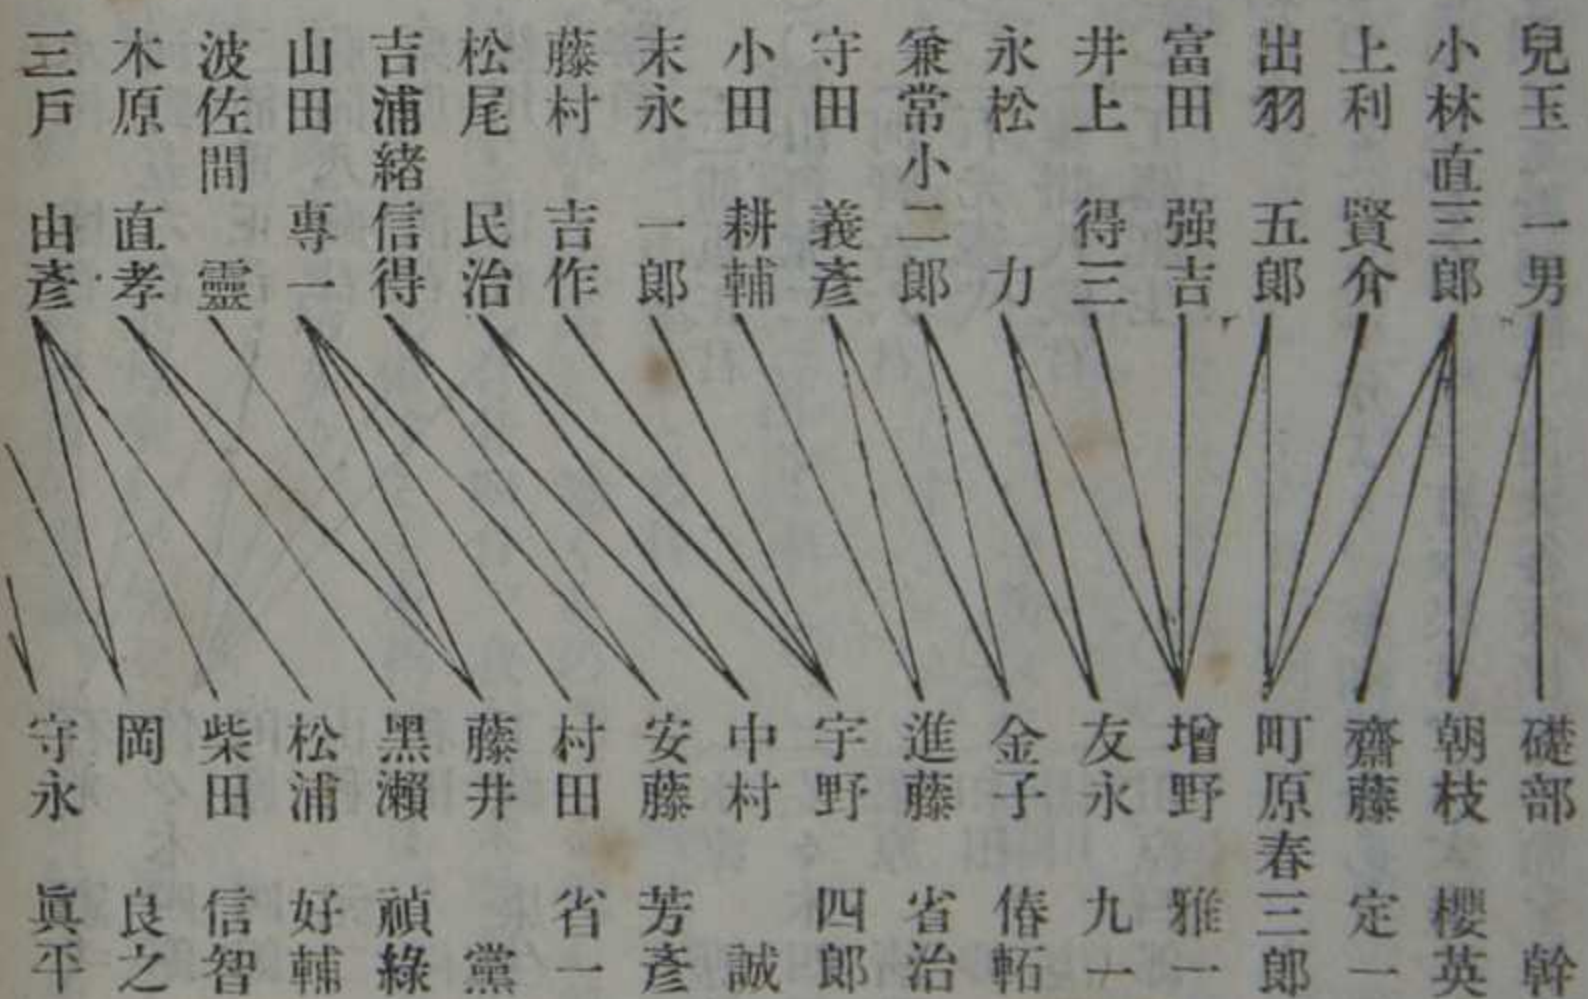 兒玉一男
小林直三郎
上利賢介
出羽五郎
富田强吉
井上得三
永松力
兼常小二郎
守田義彥
小田耕輔
末永一郎
藤村吉作
松尾民治
吉浦緒信得
山田專一
波佐間靈
木原直孝
三戸由彥
礎部幹
朝枝櫻英
齋藤定一
町原春三郎
增野雅一
友永九一
金子偆䡎
進藤省治
宇野四郎
中村誠
安藤芳彥
村田省一
藤井黨
黑瀨禎綠
松浦好輔
柴田信智
岡良之
守永眞平